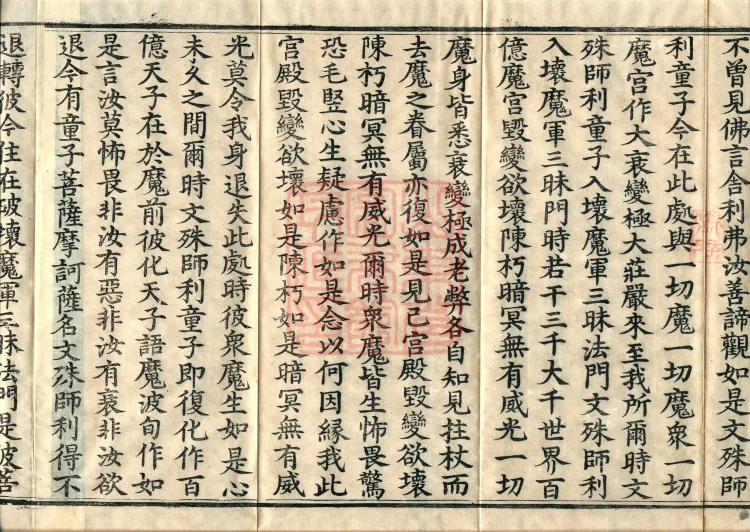 不曾見佛言舍利弗汝善諦觀如是文殊師
利童子今在此處與一切魔一切魔衆一切
魔宮作大衰變極大莊嚴來至我所爾時文
殊師利童子入壞魔軍三昧法門文殊師利
入壞魔軍三昧門時若干三千大千世界百
億魔宮毀變欲壞陳朽暗冥無有威光一切
魔身皆悉衰變極成老弊各自知見拄杖而
去魔之眷屬亦復如是見己宮殿毀變欲壞
陳朽暗冥無有威光爾時衆魔皆生怖畏驚
恐毛竪心生疑慮作如是念以何因緣我此
宮殿毀變欲壞如是陳朽如是暗冥無有威
光莫令我身退失此處時彼衆魔生如是心
未久之間爾時文殊師利童子即復化作百
億天子在於魔前彼化天子語魔波旬作如
是言汝莫怖畏非汝有惡非汝有衰非汝欲
退今有童子菩薩摩訶薩名文殊師利得不
退轉彼今住在破壞魔軍三昧法門是彼菩